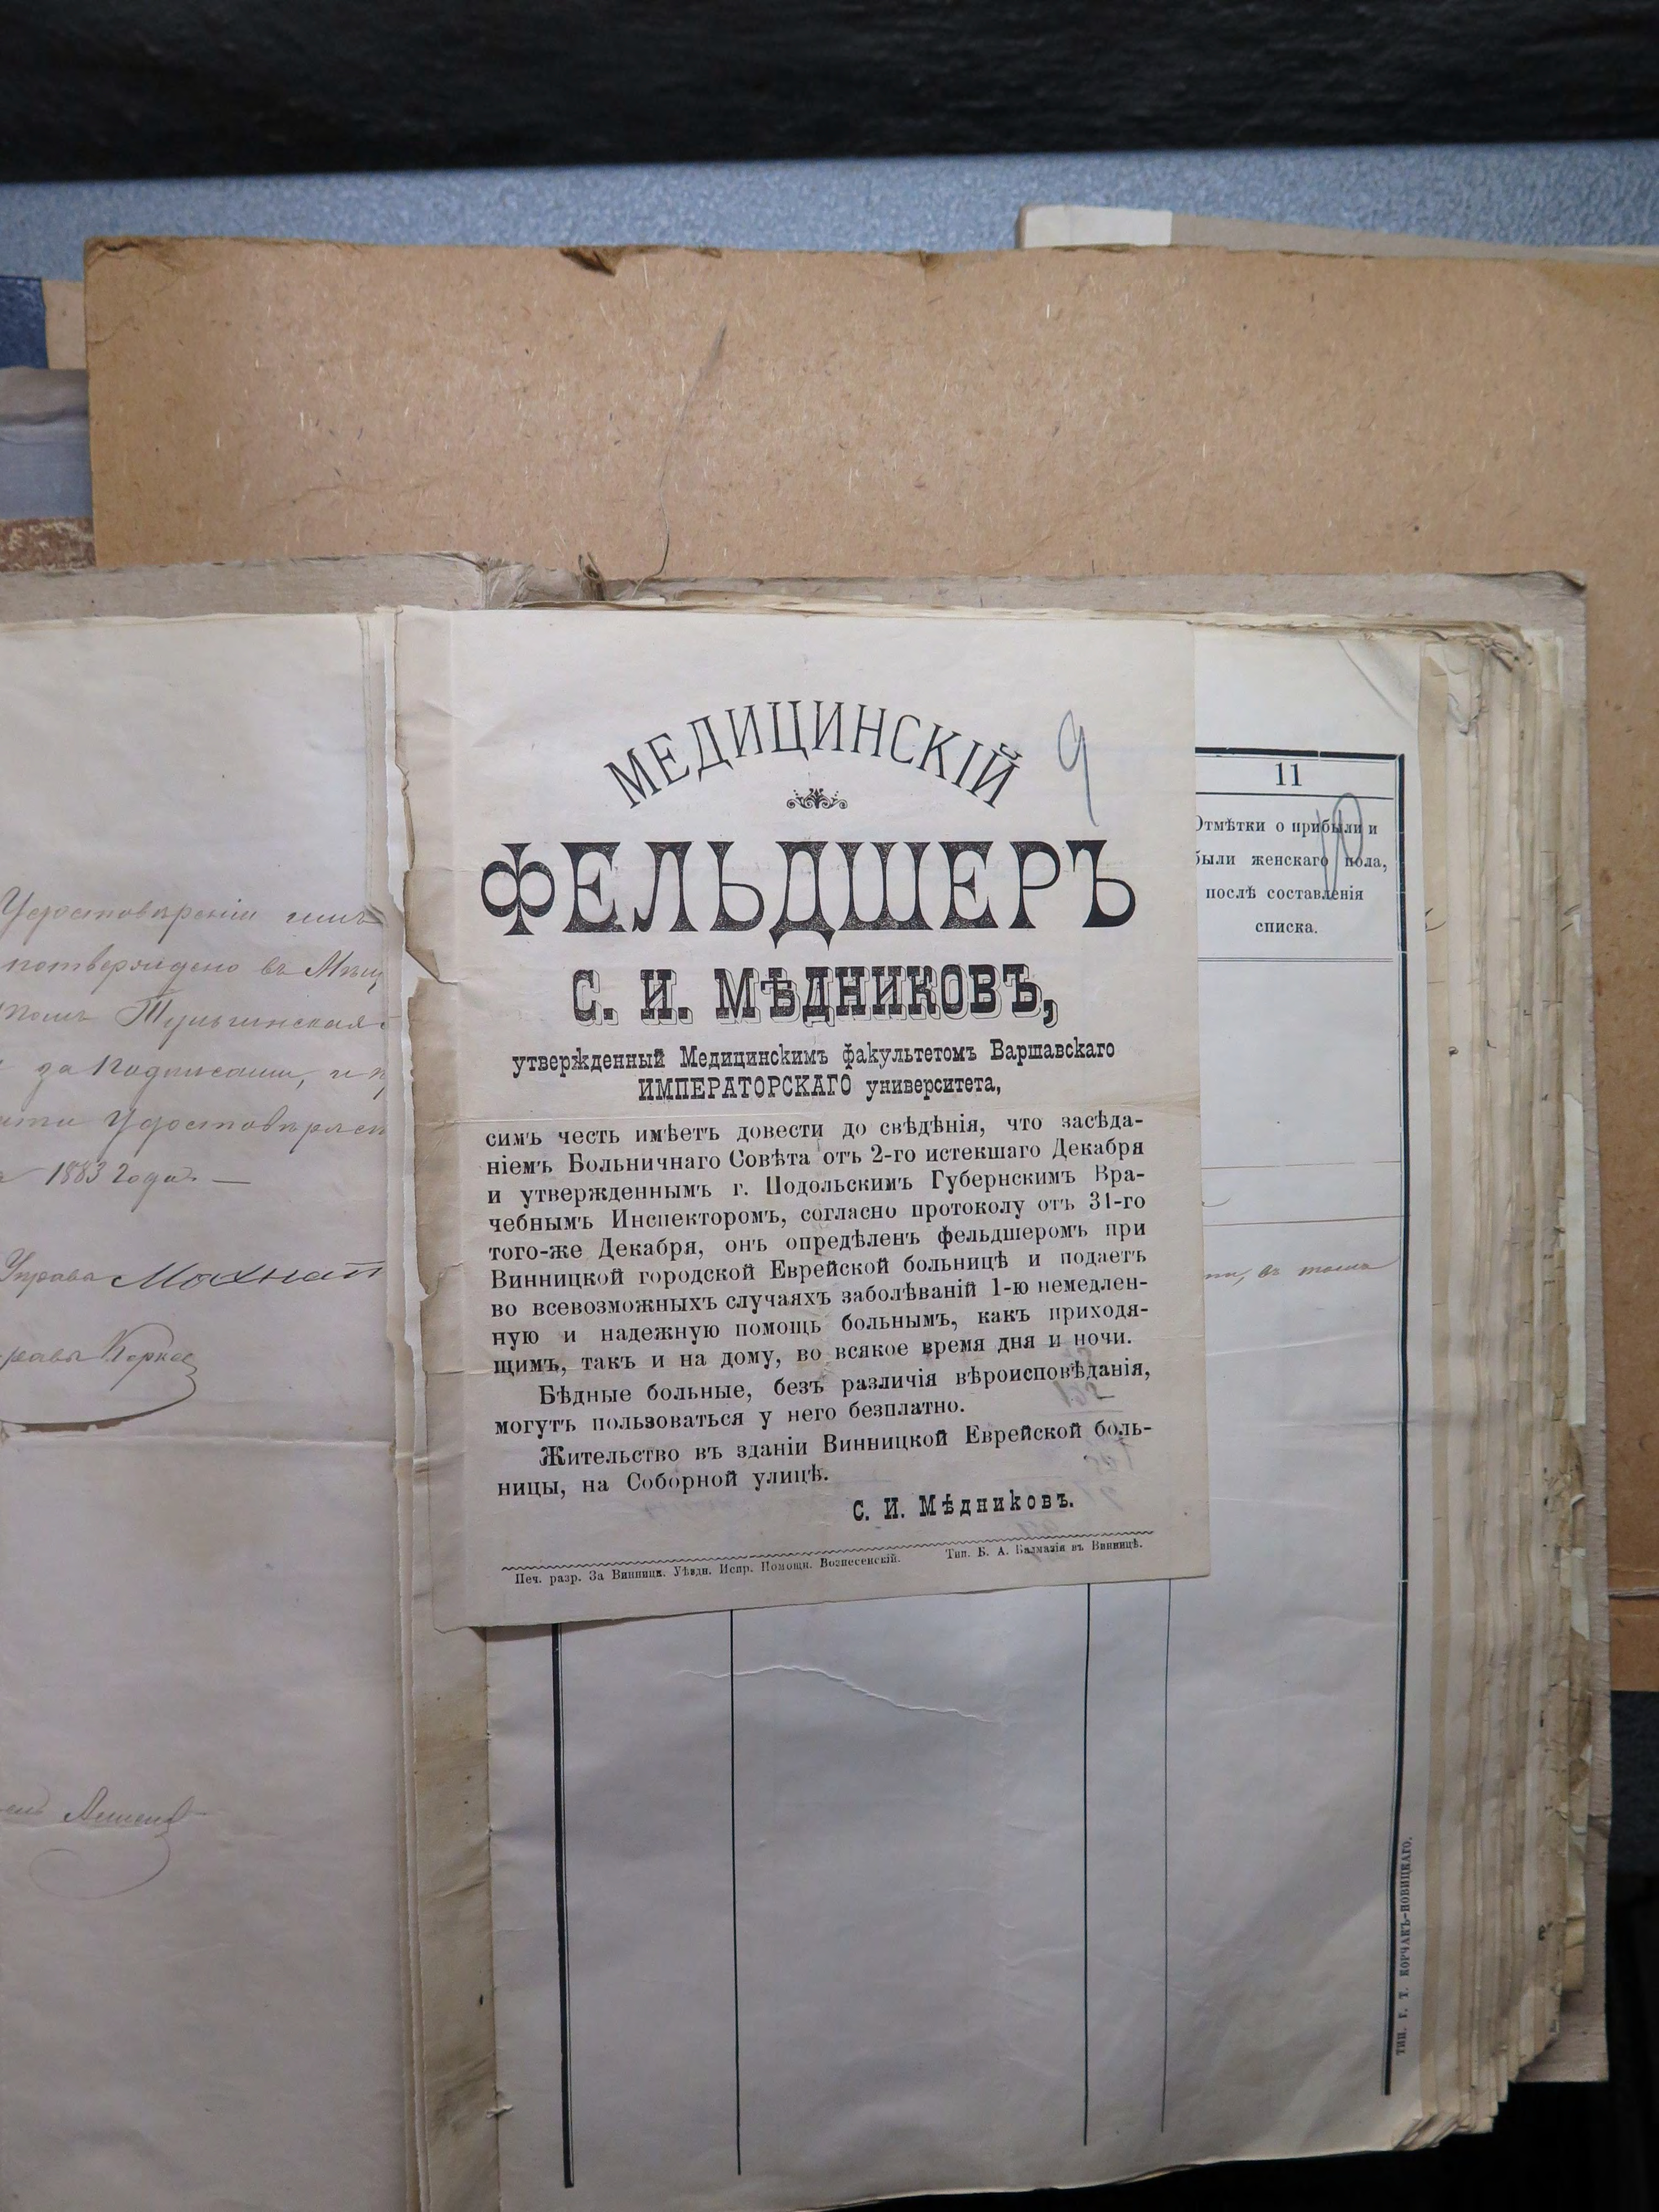 Удостовѣреніи
потверждено въ
за подписаніи, и
1883 года —
Управа
МЕДИЦИНСКІЙ
9
ФЕЛЬДШЕРЪ
С. И. МѢДНИКОВЪ,
утвержденный Медицинскимъ факультетомъ Варшавскаго
ИМПЕРАТОРСКАГО университета,
симъ честь имѣетъ довести до свѣдѣнія, что засѣда-
ніемъ Больничнаго Совѣта отъ 2-го истекшаго Декабря
и утвержденнымъ г. Подольскимъ Губернскимъ Вра-
чебнымъ Инспекторомъ, согласно протоколу отъ 31-го
того-же Декабря, онъ опредѣленъ фельдшеромъ при
Винницкой городской Еврейской больницѣ и подаетъ
во всевозможныхъ случаяхъ заболѣваній 1-ю немедлен-
ную и надежную помощь больнымъ, какъ приходя-
щимъ, такъ и на дому, во всякое время дня и ночи.
Бѣдные больные, безъ различія вѣроисповѣданія,
могутъ пользоваться у него безплатно.
Жительство въ зданіи Винницкой Еврейской боль-
ницы, на Соборной улицѣ.
С. И. Мѣдниковъ.
Печ. разр. За Винницк. Уѣздн. Испр. Помощн. Вознесенскій.
Тип. Б. А. Балмазія въ Винницѣ.
11
10
Отмѣтки о прибыли и
были женскаго пола,
послѣ составленія
списка.
въ томъ
ТИП. Г. Т. КОРЧАКЪ-НОВИЦКАГО.